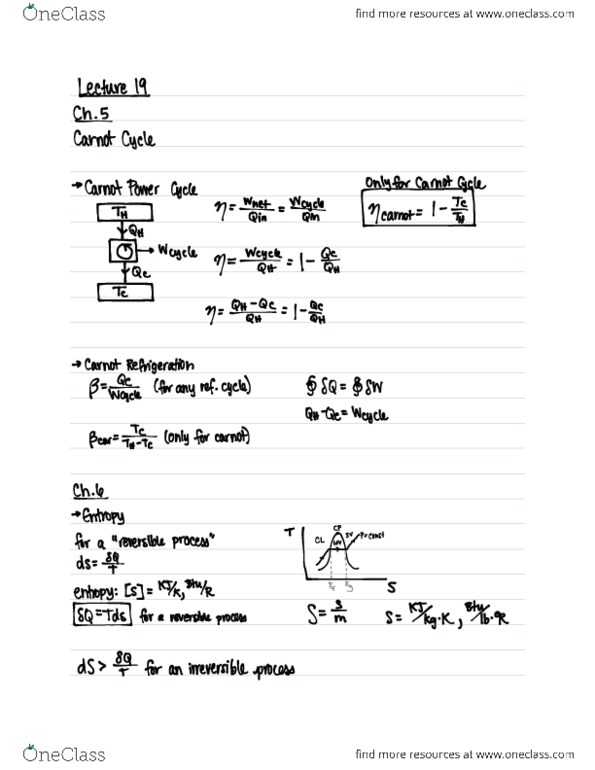 OneClass find more resources at www.oneclass.com
Lecture 19
Ch.5
Carnot Cycle
→ Carnot Power Cycle
TH
QH
→ Wcycle
Qc
Tc
η = Wnet/Qin = Wcycle/Qin
η = Wcycle/QH = 1 - Qc/QH
η = QH - Qc/QH = 1 - Qc/QH
Only for Carnot Cycle
ηcarnot = 1 - Tc/TH
→ Carnot Refrigeration
β = Qc/Wcycle (for any ref. cycle)
∮ δQ = ∮ δW
QH - Qc = Wcycle
βcar = Tc/TH - Tc (only for carnot)
Ch.6
→ Entropy
for a "reversible process"
ds = δQ/T
entropy: [s] = KJ/K, Btu/R
δQ = Tds for a reversible process
T
CP
CL
SV
S
S = S/m
S = KJ/kg·K, Btu/lb·°R
dS > δQ/T for an irreversible process
OneClass find more resources at www.oneclass.com